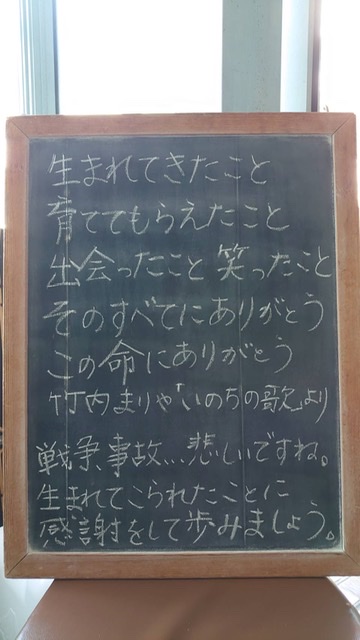 生まれてきたこと
育ててもらえたこと
出会ったこと 笑ったこと
そのすべてにありがとう
この命にありがとう
竹内まりや「いのちの歌」より
戦争、事故…悲しいですね。
生まれてこられたことに
感謝をして歩みましょう。